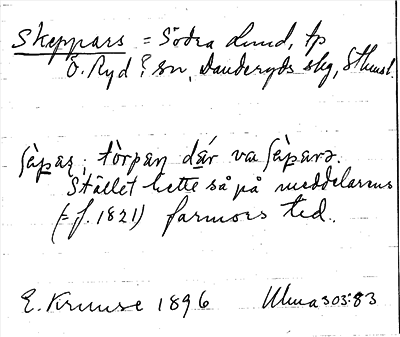 Skeppars = Södra Lund, tp
Ö. Ryd? sn, Danderyds skg, Sthmsl.
ʃàpaʂ; tòrpaɳ dár va ʃàparə.
Stället hette så på meddelarens
(= f. 1821) farmors tid.
E. Kruuse 1896 Ulma 303:83